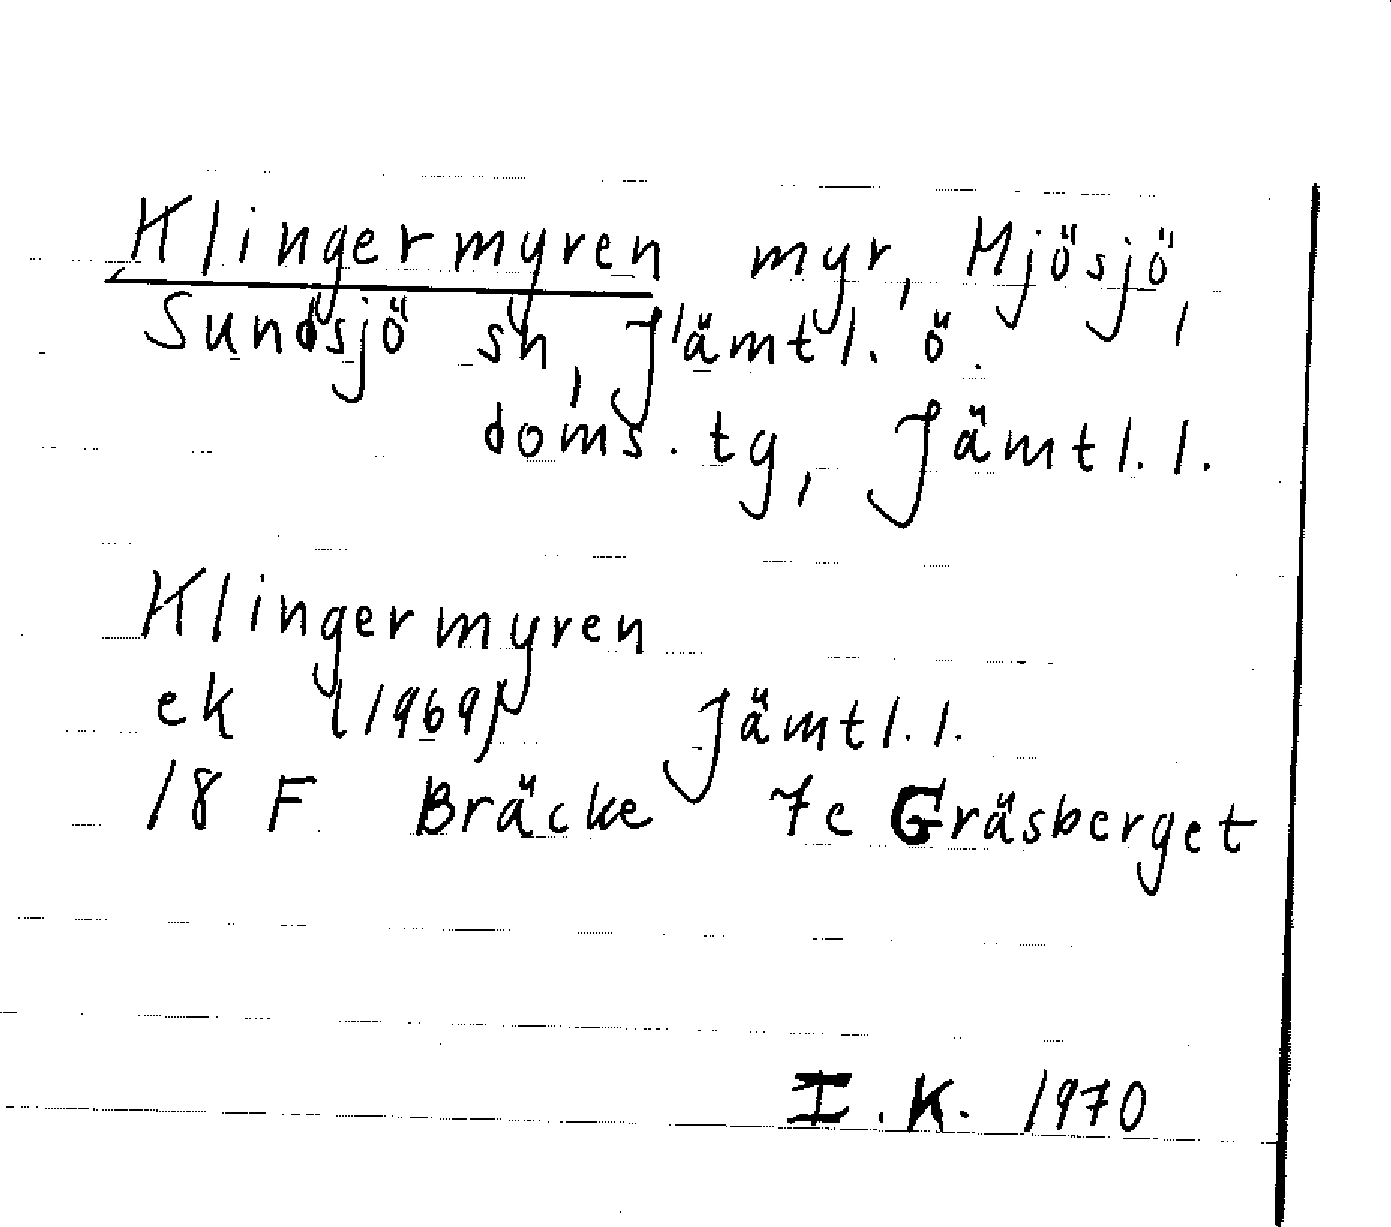 Klingermyren myr, Mjösjö,
Sundsjö sn, Jämtl. ö.
doms.tg, Jämtl.l.
Klingermyren
ek (1969) Jämtl.l.
18 F Bräcke 7e Gräsberget
I.K. 1970